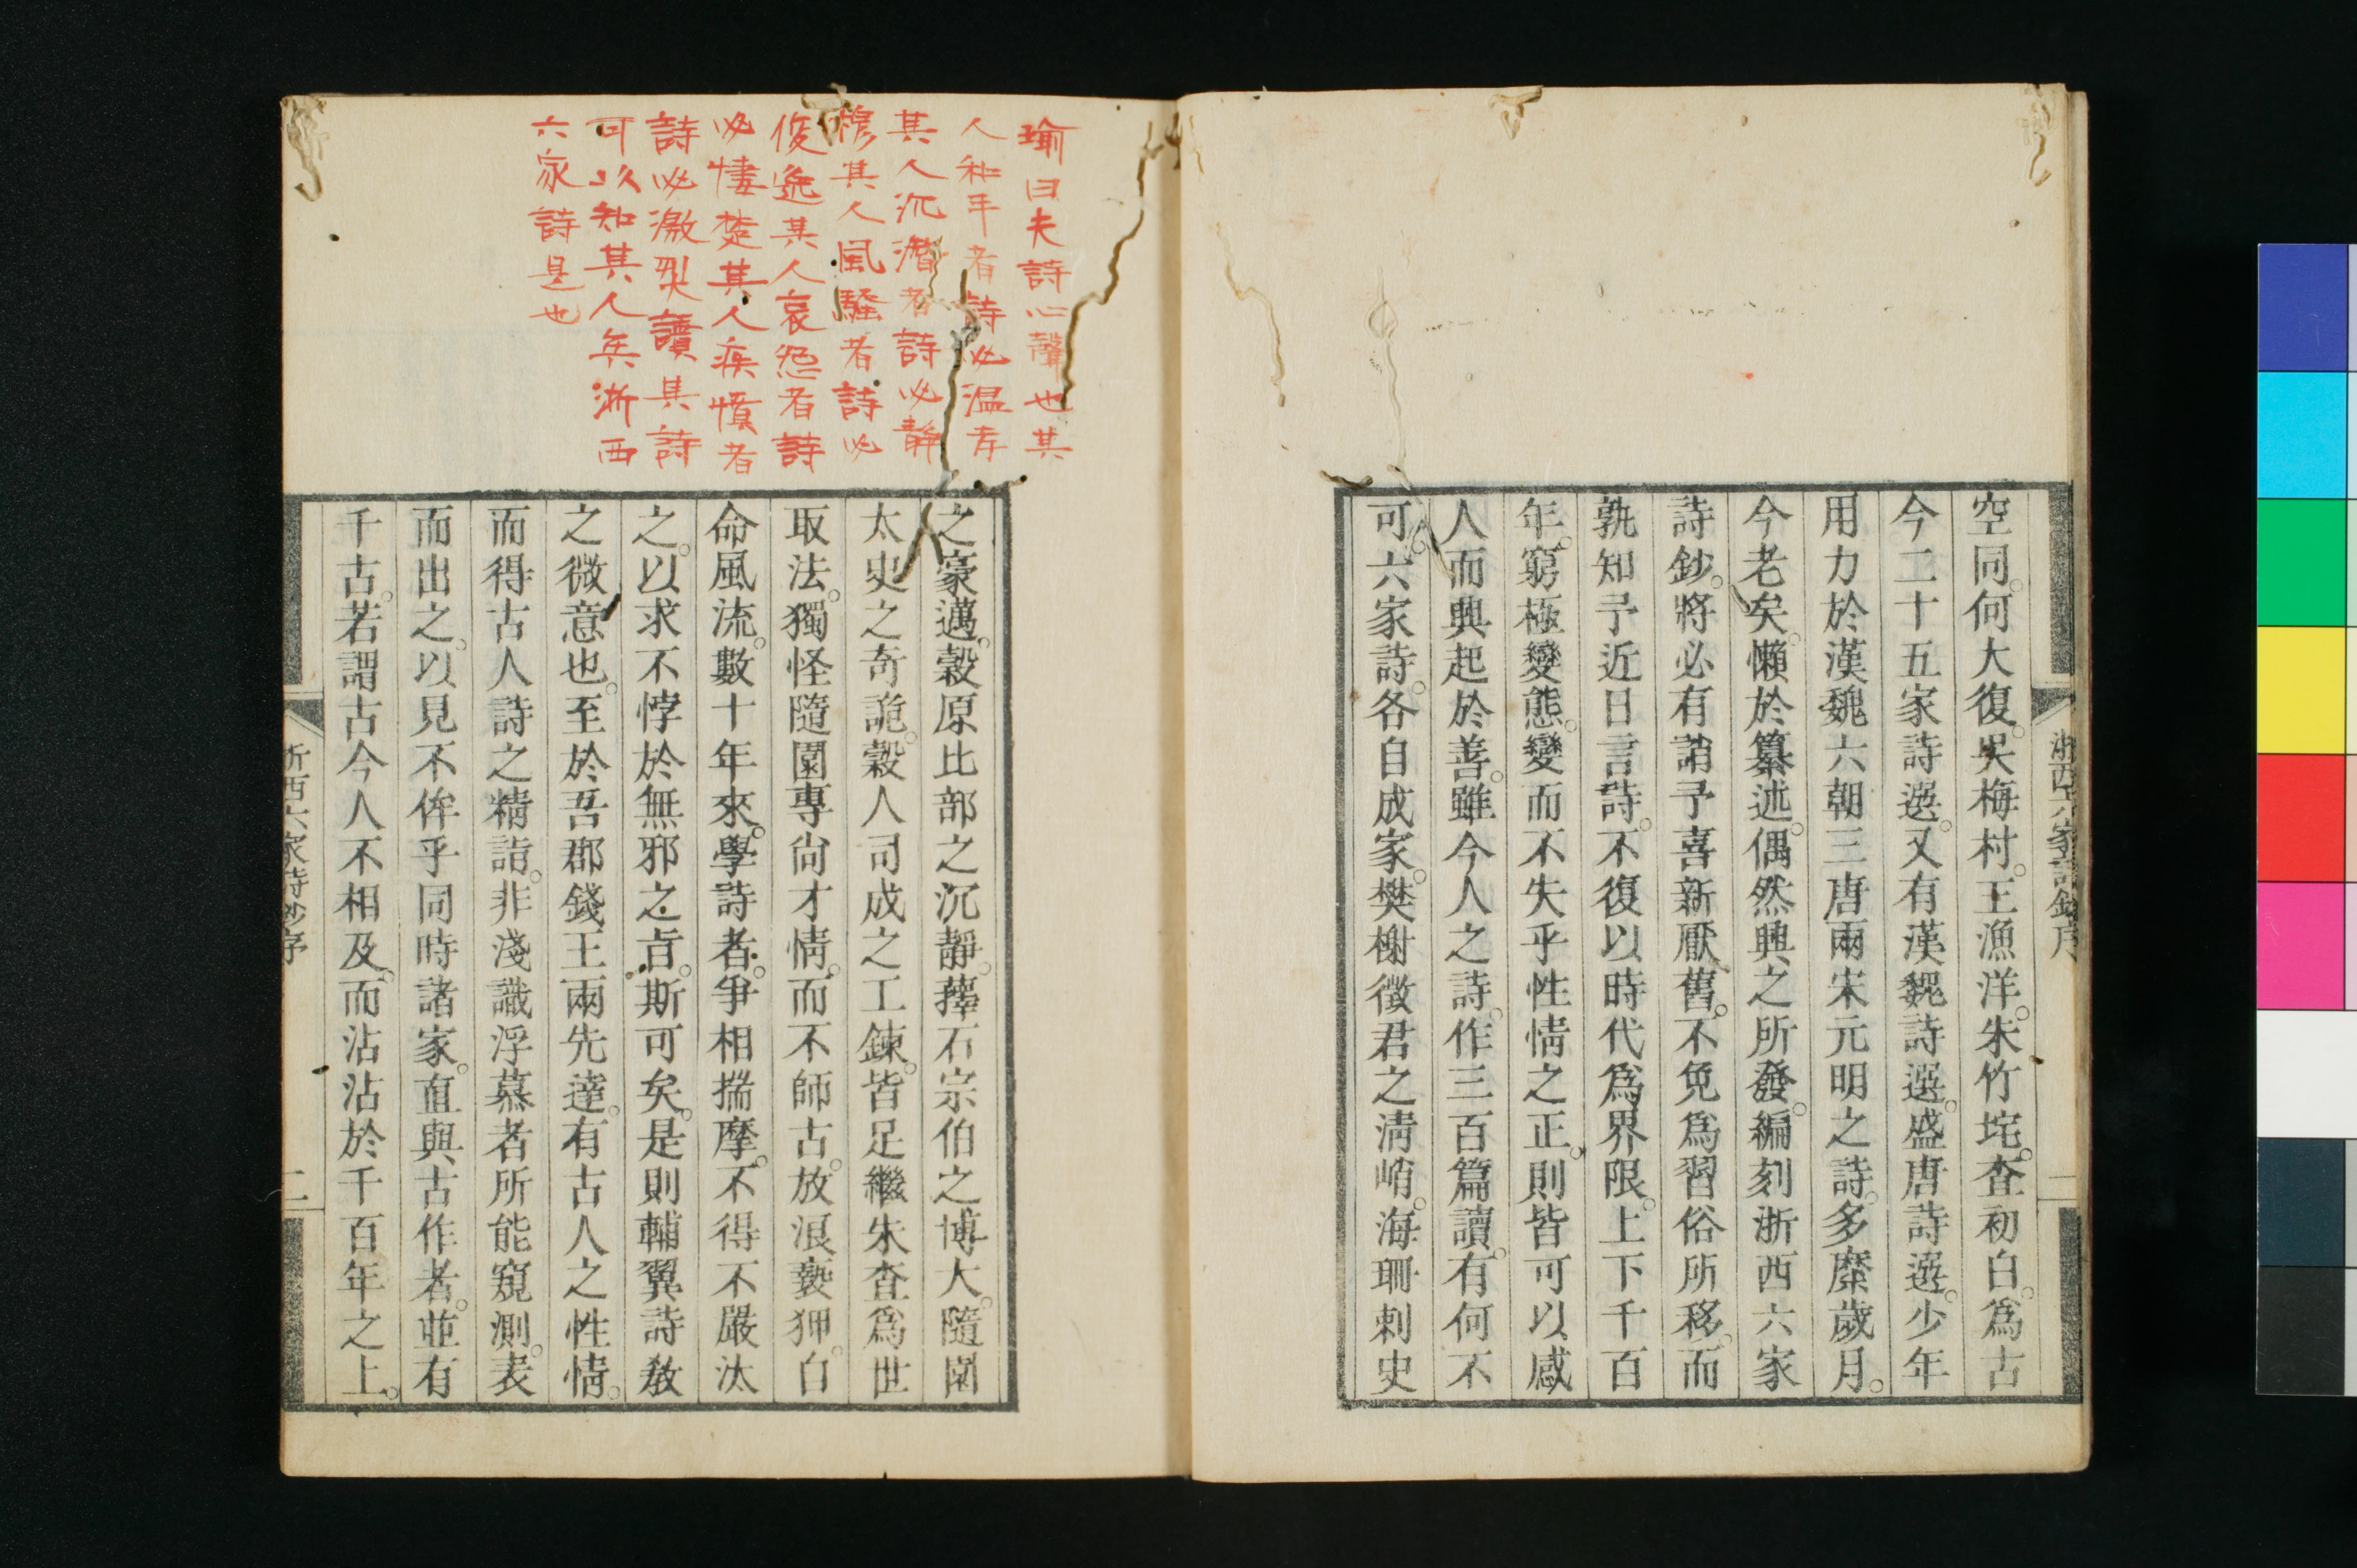 浙西六家詩鈔序
一
空同。何大復。吳梅村。王漁洋。朱竹垞。查初白。爲古
今二十五家詩選。又有漢魏詩選。盛唐詩選。少年
用力於漢魏六朝三唐兩宋元明之詩。多糜歲月。
今老矣。懶於纂述。偶然興之所發。編刻浙西六家
詩鈔。將必有誚予喜新厭舊。不免爲習俗所移。而
孰知予近日言詩。不復以時代爲界限。上下千百
年。窮極變態。變而不失乎性情之正。則皆可以感
人而興起於善。雖今人之詩。作三百篇讀。有何不
可。六家詩。各自成家。樊榭徵君之清峭。海珊刺史
瑜曰夫詩心聲也其
人和平者詩必温存
其人沉濳者詩必靜
穆其人風騷者詩必
俊逸其人哀怨者詩
必悽楚其人疾憤者
詩必激烈讀其詩
可以知其人矣浙西
六家詩是也
之豪邁。穀原比部之沉靜。蘀石宗伯之博大。隨園
太史之奇詭。穀人司成之工鍊。皆足繼朱查爲世
取法。獨怪隨園專尙才情。而不師古。放浪褻狎。自
命風流。數十年來。學詩者。爭相揣摩。不得不嚴汰
之。以求不悖於無邪之旨。斯可矣。是則輔翼詩教
之微意也。至於吾郡錢王兩先達。有古人之性情。
而得古人詩之精詣。非淺識浮慕者所能窺測。表
而出之。以見不侔乎同時諸家。直與古作者。並有
千古。若謂古今人不相及。而沾沾於千百年之上。
浙西六家詩鈔序
二